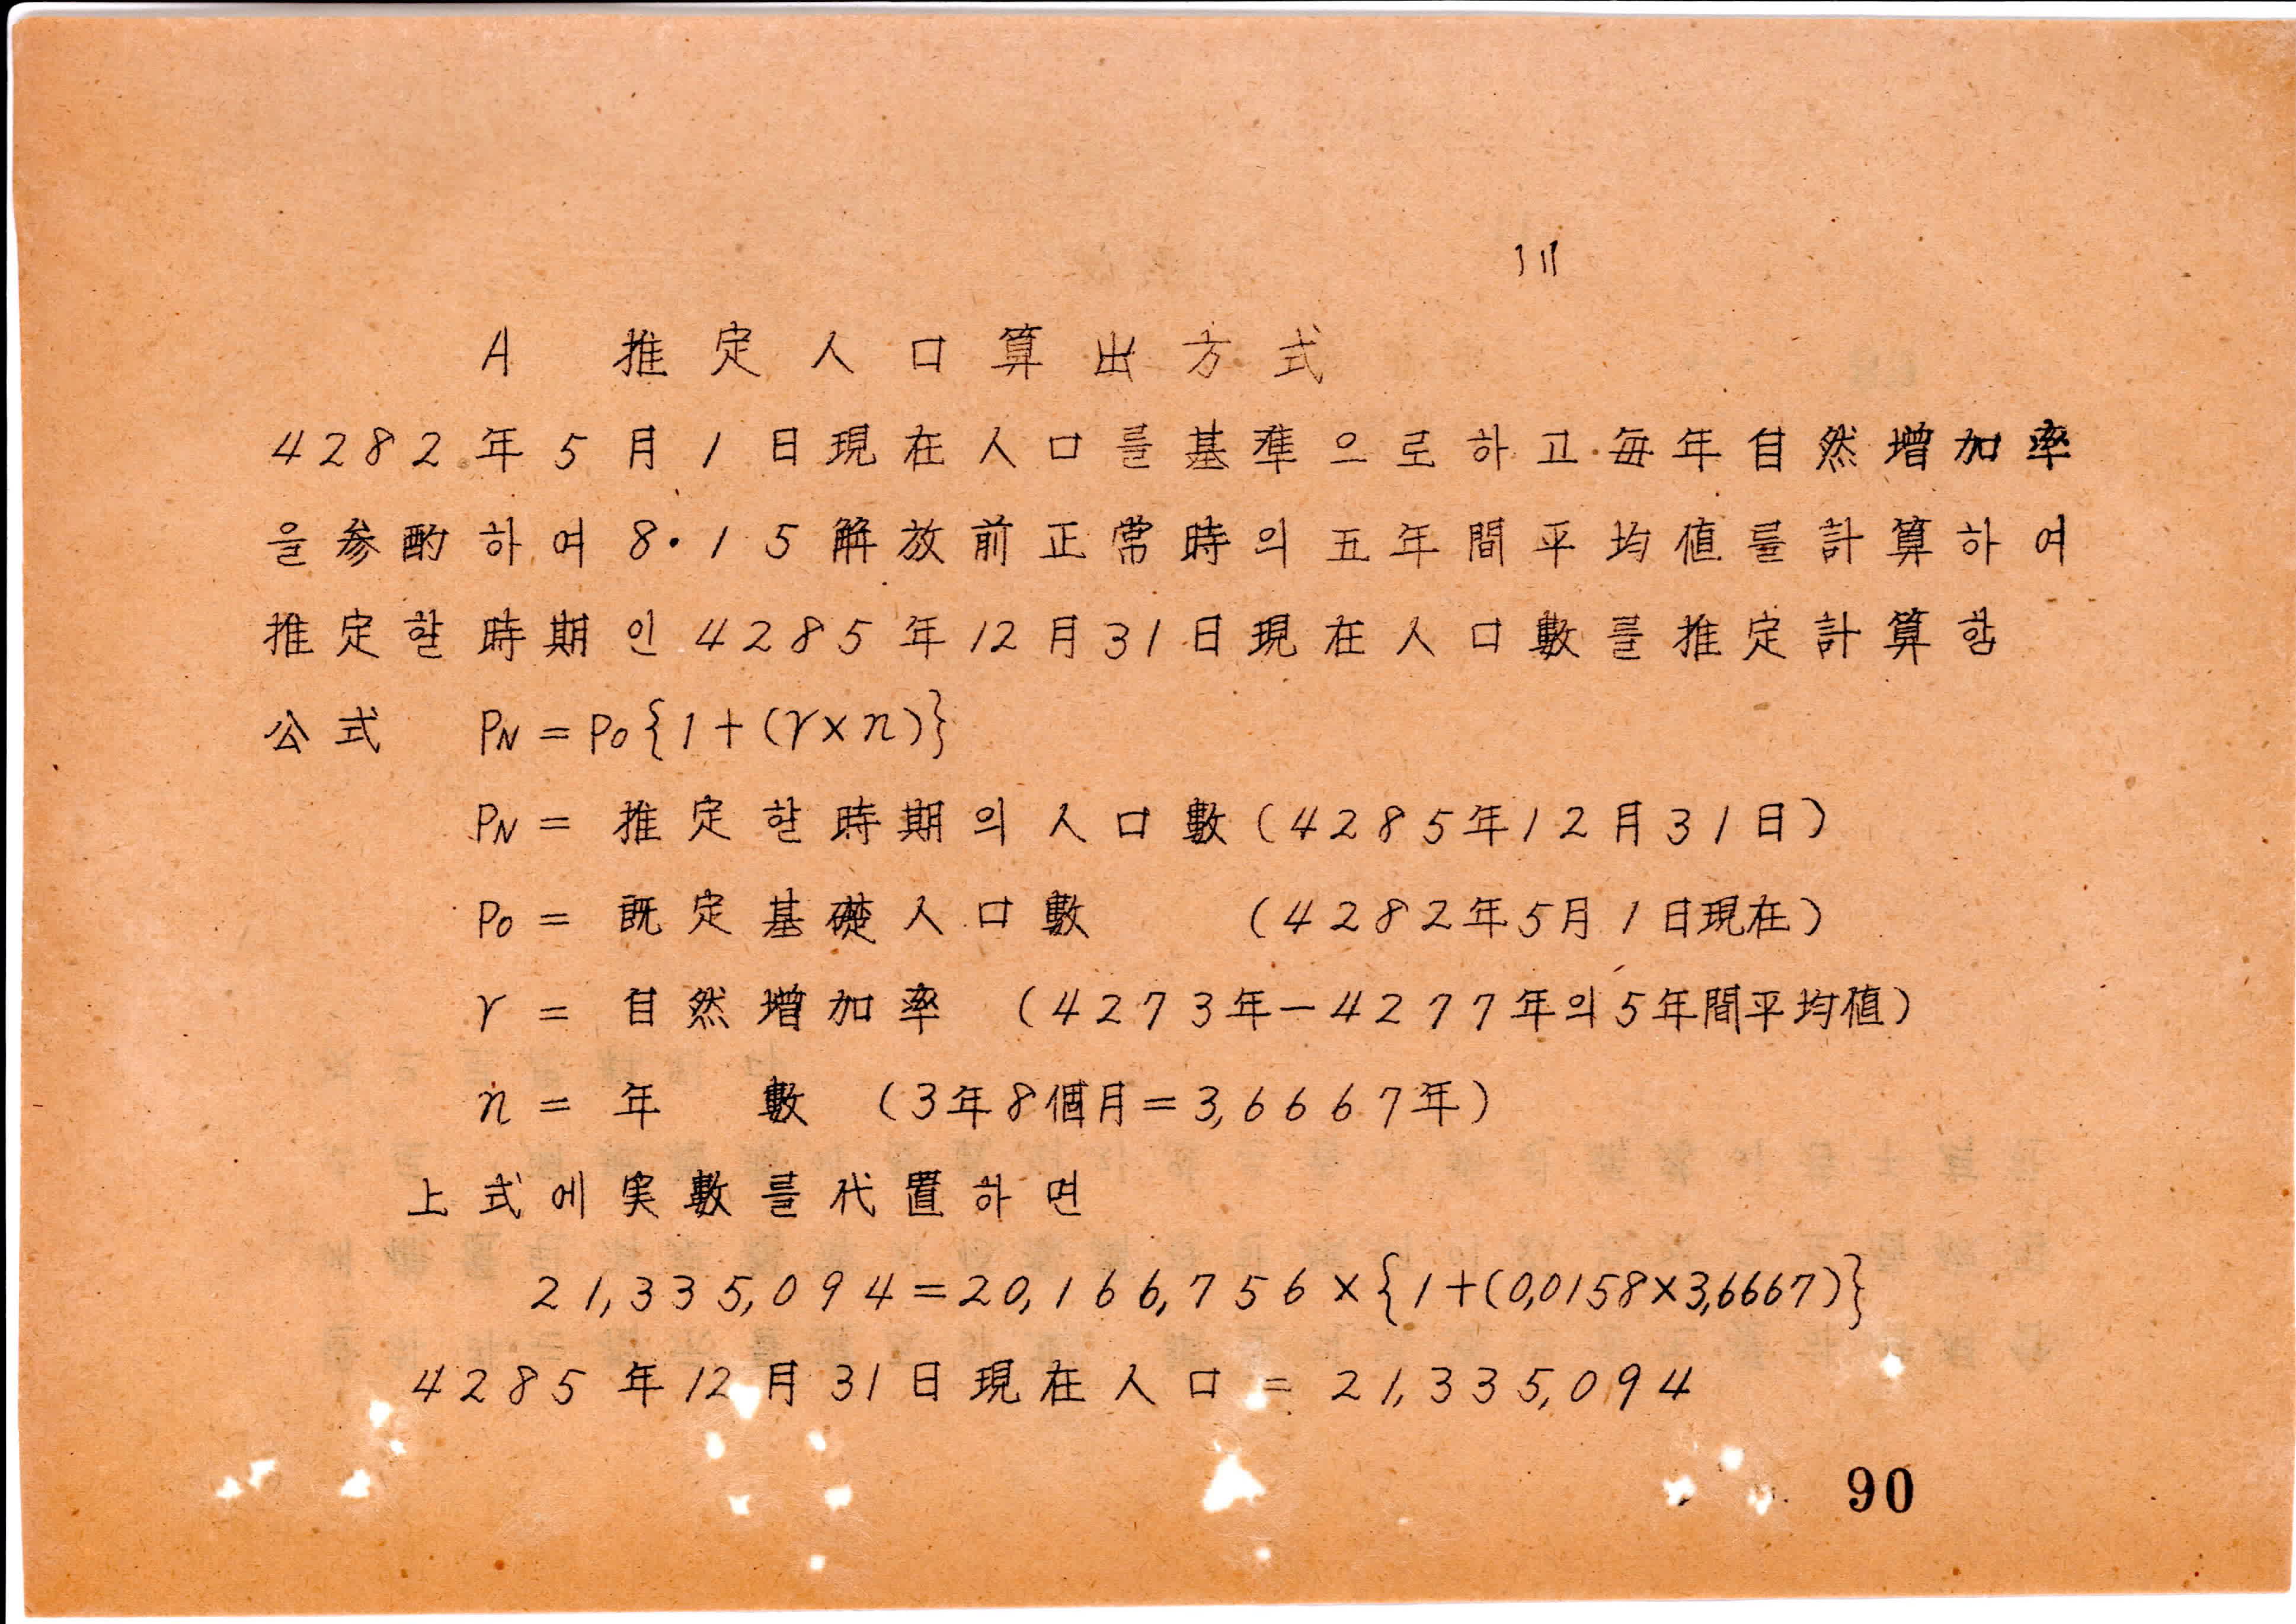 A 推定人口算出方式
4282年5月1日現在人口를基準으로하고每年自然增加率
을参酌하여8·15解放前正常時의五年間平均値를計算하여
推定할時期인4285年12月31日現在人口數를推定計算함
公式 PN=P0{1+(r×n)}
PN= 推定할時期의人口數(4285年12月31日)
P0= 既定基礎人口數 (4282年5月1日現在)
r = 自然增加率 (4273年-4277年의5年間平均値)
n = 年 數 (3年8個月=3,6667年)
上式에実數를代置하면
21,335,094=20,166,756×{1+(0,0158×3,6667)}
4285年12月31日現在人口=21,335,094
90